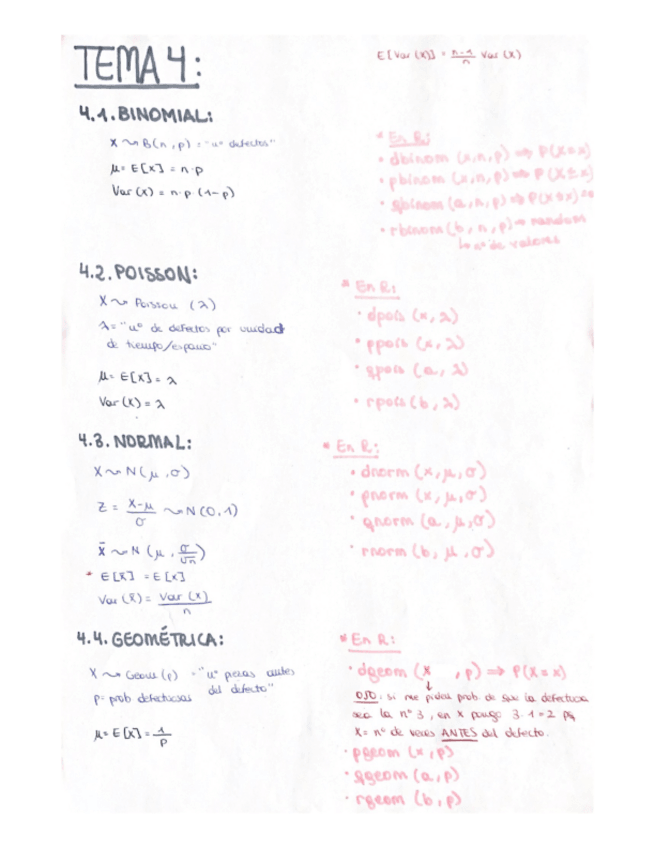 TEMA 4:
E[Var(X)] = n-1/n Var(X)
4.1. BINOMIAL:
X ~ B(n,p) = "nº defectos"
μ = E[X] = n·p
Var(X) = n·p·(1-p)
* En R:
• dbinom (x,n,p) ⇒ P(X=x)
• pbinom (x,n,p) ⇒ P(X≤x)
• qbinom (a,n,p) ⇒ P(X≤x)=a
• rbinom (b,n,p) → random
↳ nº de valores
4.2. POISSON:
X ~ Poisson (λ)
λ = "nº de defectos por unidad
de tiempo/espacio"
μ = E[X] = λ
Var(X) = λ
* En R:
• dpois (x,λ)
• ppois (x,λ)
• qpois (a,λ)
• rpois (b,λ)
4.3. NORMAL:
X ~ N(μ,σ)
Z = X-μ/σ ~ N(0,1)
x̄ ~ N(μ, σ/√n)
* E[x̄] = E[x]
Var(x̄) = Var(x)/n
* En R:
• dnorm (x,μ,σ)
• pnorm (x,μ,σ)
• qnorm (a,μ,σ)
• rnorm (b,μ,σ)
4.4. GEOMÉTRICA:
X ~ Geom (p) = "nº piezas antes
del defecto"
p = prob defectuosas
μ = E[X] = 1/p
* En R:
• dgeom (x, p) ⇒ P(X=x)
↓
OJO: si me piden prob de que la defectuosa
sea la nº 3, en x pongo 3-1=2 pq
X = nº de veces ANTES del defecto.
• pgeom (x,p)
• qgeom (a,p)
• rgeom (b,p)